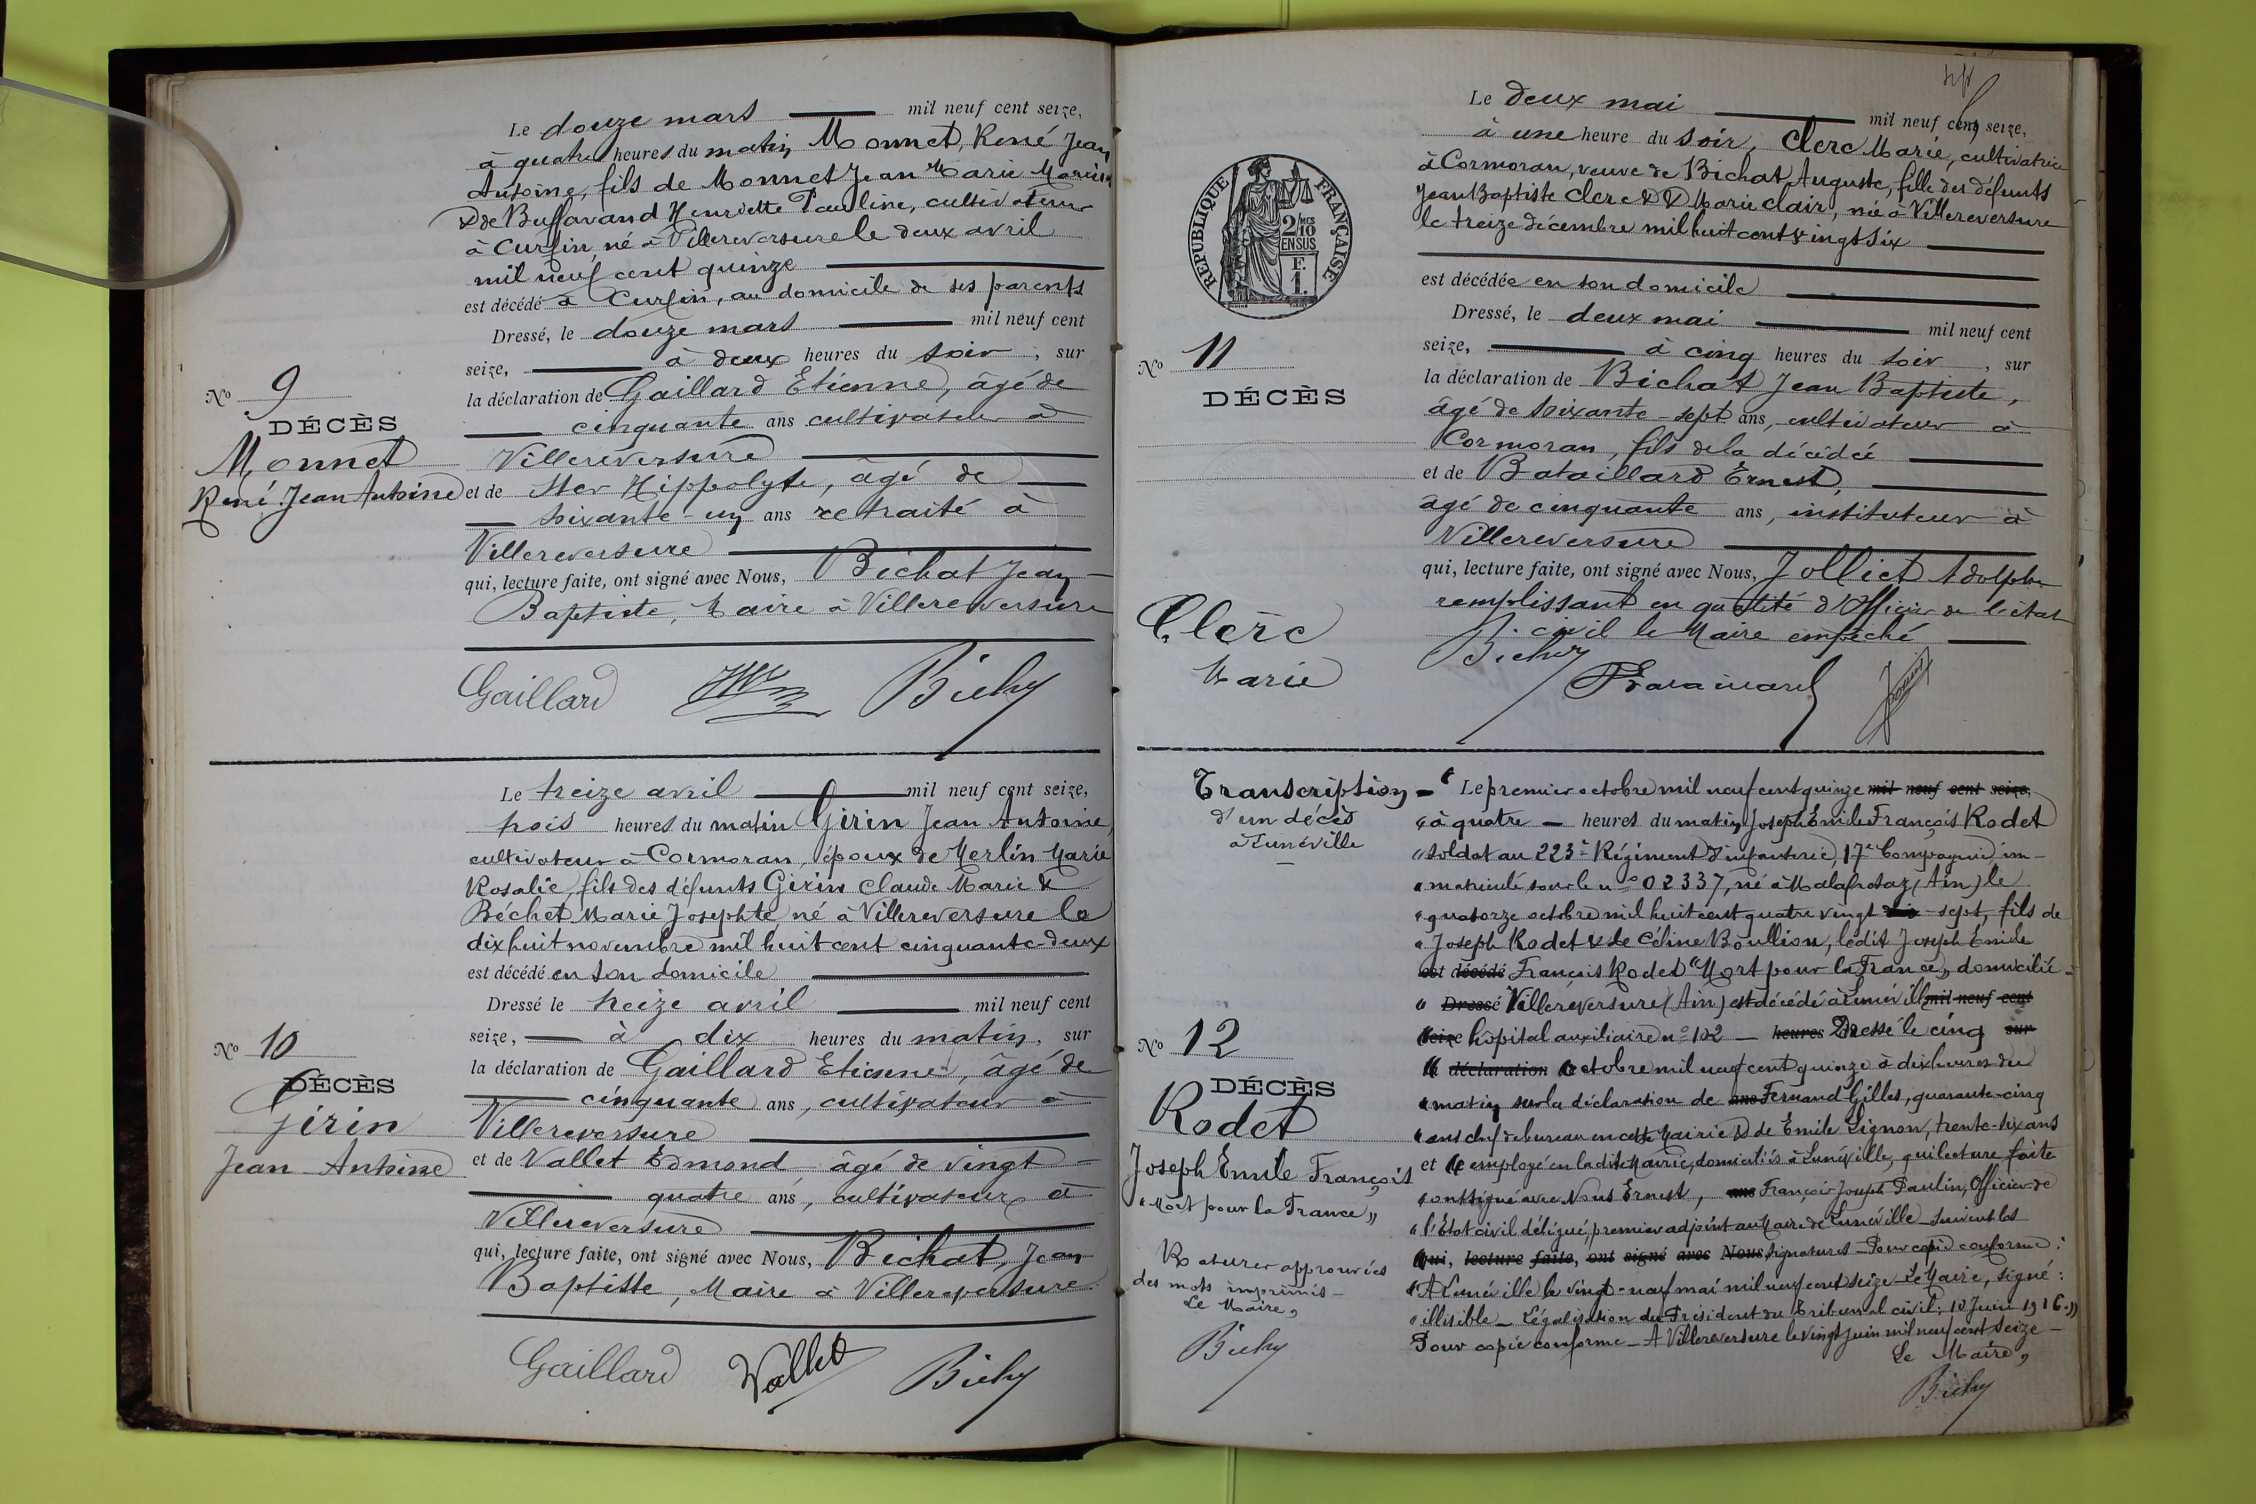 Le douze mars mil neuf cent seize,
à quatre heures du matin Monnet, René Jean
Antoine, fils de Monnet Jean Marie
& de Buffavand Henriette Pauline, cultivateurs
à Curfin, né à Villereversure le deux avril
mil neuf cent quinze
est décédé à Curfin, au domicile de ses parents
Dressé, le douze mars mil neuf cent
seize, à deux heures du soir, sur
la déclaration de Gaillard Etienne, âgé de
cinquante ans cultivateur à
Villereversure
et de Hippolyte, âgé de
soixante-un ans retraité à
Villereversure
qui, lecture faite, ont signé avec Nous, Bichat Jean
Baptiste, Maire à Villereversure
No 9
DÉCÈS
Monnet
René Jean Antoine
Gaillard
Le treize avril mil neuf cent seize,
trois heures du matin Girin Jean Antoine,
cultivateur à Cormoran, époux de Merlin Marie
Rosalie, fils des défunts Girin Claude Marie &
Béchet Marie Josephte né à Villereversure le
dix huit novembre mil huit cent cinquante-deux
est décédé en son domicile
Dressé le treize avril mil neuf cent
seize, à dix heures du matin, sur
la déclaration de Gaillard Etienne, âgé de
cinquante ans, cultivateur à
Villereversure
et de Vallet Edmond, âgé de vingt
quatre ans, cultivateur à
Villereversure
qui, lecture faite, ont signé avec Nous, Bichat, Jean
Baptiste, Maire à Villereversure
No 10
DÉCÈS
Girin
Jean-Antoine
Gaillard Vallet
Le deux mai mil neuf cent seize,
à une heure du soir, Clerc Marie, cultivatrice
à Cormoran, veuve de Bichat Auguste, fille des défunts
Jean Baptiste Clerc & D Marie Clair, née à Villereversure
le treize décembre mil huit cent vingt six
est décédée en son domicile
Dressé, le deux mai mil neuf cent
seize, à cinq heures du soir, sur
la déclaration de Bichat Jean Baptiste,
âgé de soixante-sept ans, cultivateur à
Cormoran, fils de la décédée
et de Bataillard Ernest,
âgé de cinquante ans, instituteur à
Villereversure
qui, lecture faite, ont signé avec Nous, Jolliet Adolphe
remplissant en qualité d'Officier de l'état
civil le Maire empêché
RÉPUBLIQUE FRANÇAISE
2/10
EN SUS
F.
1.
No 11
DÉCÈS
Clerc
Marie
Transcription
d'un décès
à Lunéville
No 12
DÉCÈS
Rodet
Joseph Emile François
"Mort pour la France"
Ratures approuvées
des mots imprimés
Le Maire,
Le premier octobre mil neuf cent quinze mil neuf cent seize,
à quatre heures du matin Joseph Emile François Rodet
soldat au 223e Régiment d'infanterie, 17e Compagnie im-
matriculé sous le no 02337, né à Malafretaz (Ain) le
quatorze octobre mil huit cent quatre vingt dix-sept, fils de
Joseph Rodet & de Céline Boullion, ledit Joseph Emile
est décédé François Rodet "Mort pour la France" domicilié
Dressé Villereversure (Ain) est décédé à Lunéville mil neuf cent
seize hôpital auxiliaire no 102 heures Dressé le cinq sur
la déclaration octobre mil neuf cent quinze à dix heures du
matin sur la déclaration de ans Fernand Gilles, quarante-cinq
ans chef de bureau en cette Mairie & de Emile Lignon, trente-six ans
et de employé en ladite Mairie, domiciliés à Lunéville, qui lecture faite
ont signé avec Nous Ernest, ans François Joseph Paulin, Officier de
l'Etat civil délégué, premier adjoint au Maire de Lunéville Suivent les
qui, lecture faite, ont signé avec Nous, signatures - Pour copie conforme:
A Lunéville le vingt-neuf mai mil neuf cent seize - Le Maire, signé:
illisible - Légalisation du Président du Tribunal civil: 10 Juin 1916."
Pour copie conforme - A Villereversure le vingt juin mil neuf cent seize -
Le Maire,